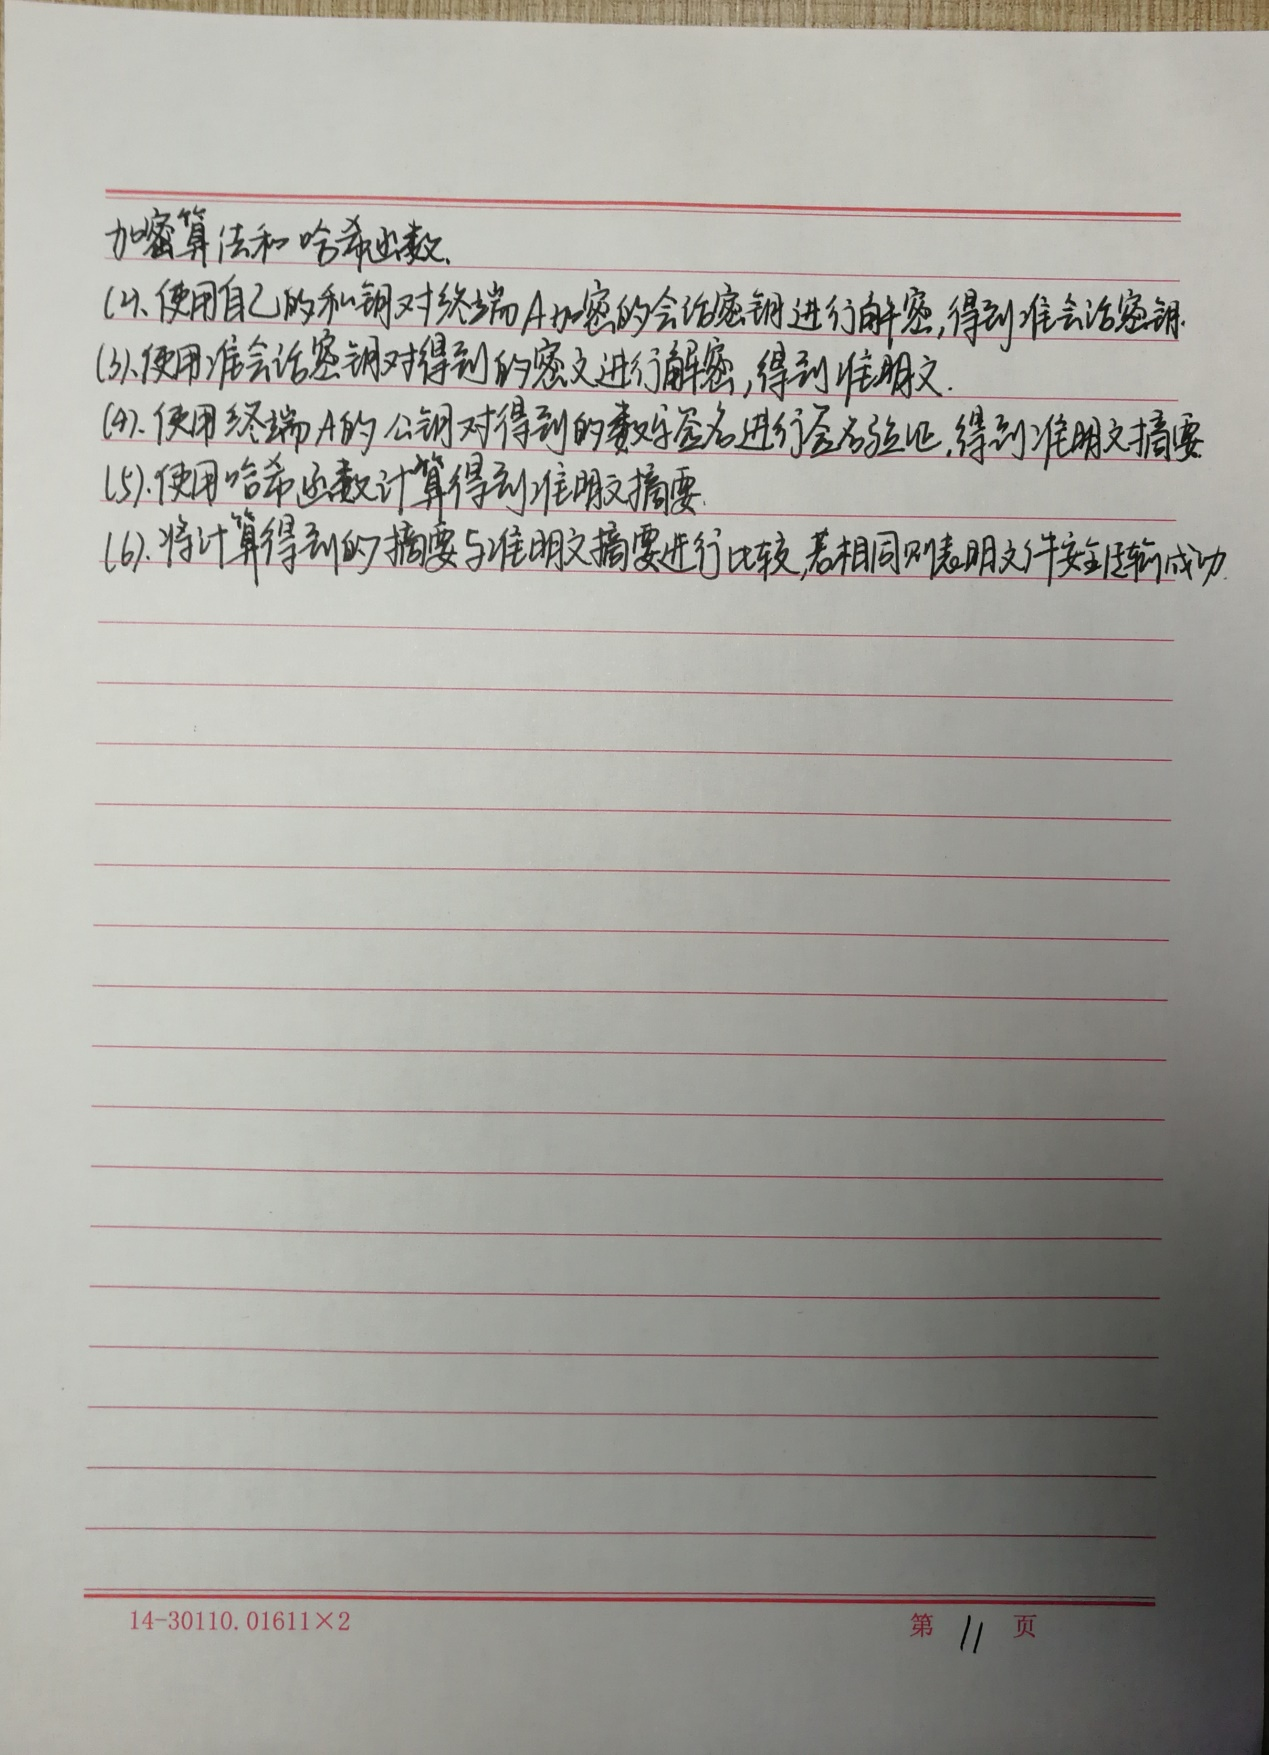 加密算法和哈希函数.
(2).使用自己的私钥对终端A加密的会话密钥进行解密,得到准会话密钥.
(3).使用准会话密钥对得到的密文进行解密,得到准明文.
(4).使用终端A的公钥对得到的数字签名进行签名验证,得到准明文摘要.
(5).使用哈希函数计算得到准明文摘要.
(6).将计算得到的摘要与准明文摘要进行比较,若相同则表明文件安全传输成功.
14-30110.01611×2
第 11 页